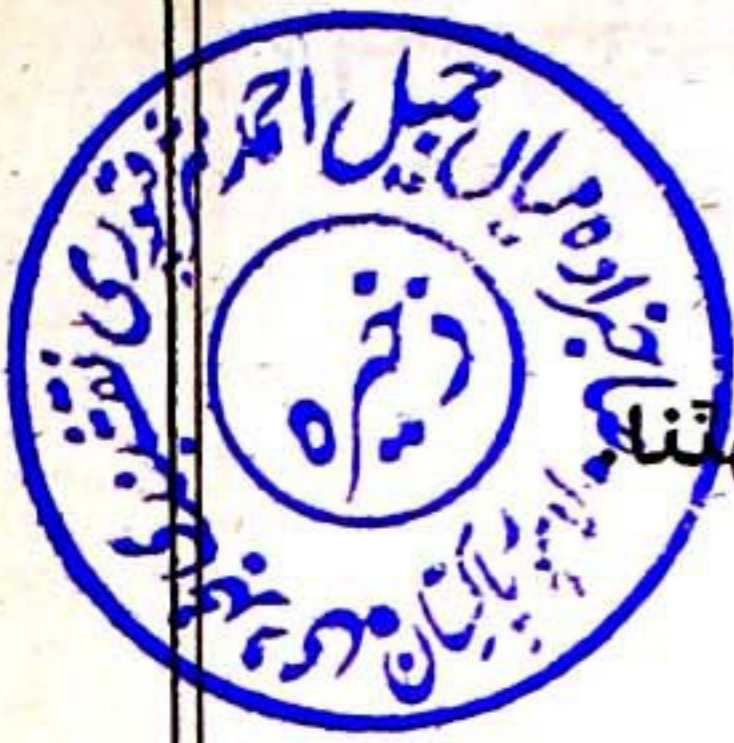 صاحبزادہ میاں جمیل احمد شرقپوری نقشبندی مجددی
پاکستان
ذخیرہ